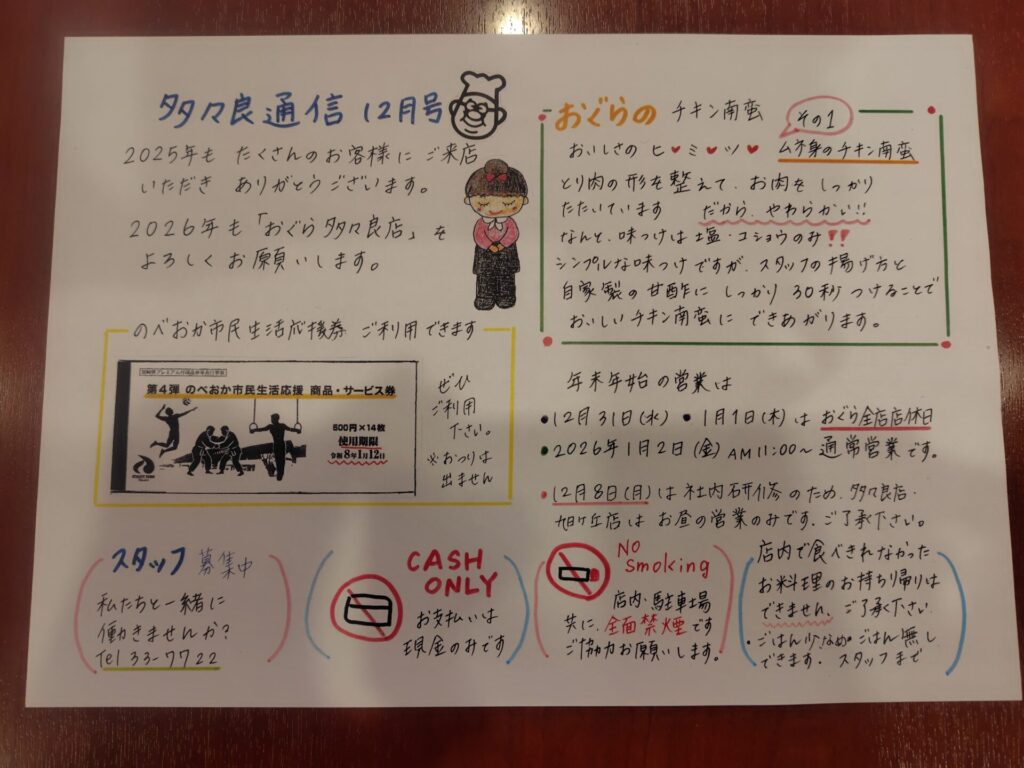 多々良通信 12月号
2025年も たくさんのお客様に ご来店
いただき ありがとうございます。
2026年も「おぐら多々良店」を
よろしく お願いします。
おぐらの チキン南蛮
その1
おいしさの ヒ♥ミ♥ツ♥ ムネ身のチキン南蛮
とり肉の形を整えて、お肉を しっかり
たたいています だから、やわらかい!!
なんと、味つけは 塩・コショウのみ!!
シンプルな味つけですが、スタッフの揚げ方と
自家製の甘酢に しっかり 30秒 つけることで
おいしいチキン南蛮に できあがります。
のべおか市民生活応援券 ご利用できます
第4弾 のべおか市民生活応援 商品・サービス券
500円×14枚
使用期限
令和8年1月12日
ぜひ
ご利用
下さい。
※おつりは
出ません
年末年始の営業は
●12月31日(水) ●1月1日(木)は おぐら全店店休日
●2026年1月2日(金) AM11:00~ 通常営業です。
●12月8日(月)は社内研修のため、多々良店・
旭ヶ丘店は お昼の営業のみです。ご了承下さい。
スタッフ 募集中
私たちと一緒に
働きませんか?
Tel 33-7722
CASH
ONLY
お支払いは
現金のみです
NO
Smoking
店内・駐車場
共に、全面禁煙です
ご協力お願いします。
店内で食べきれなかった
お料理のお持ち帰りは
できません、ご了承下さい.
・ごはん少なめ・ごはん無し
できます. スタッフまで